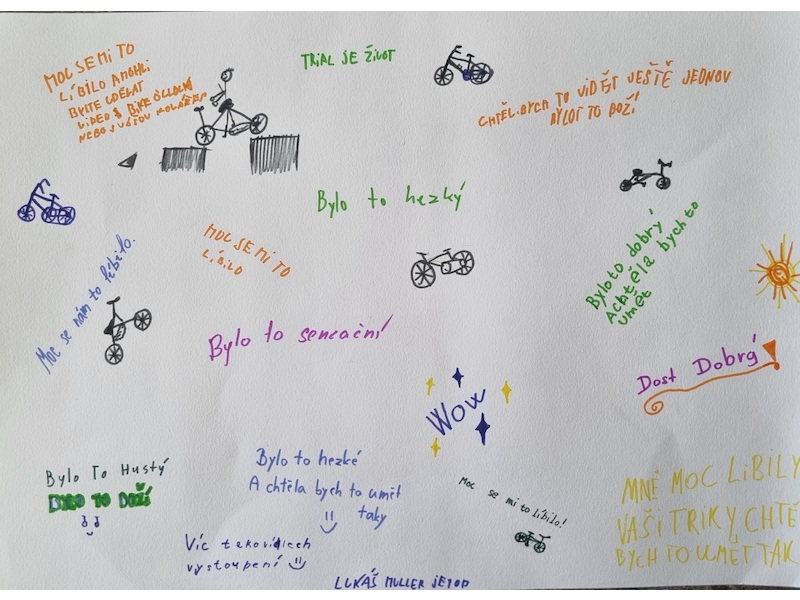 MOC SE MI TO
LÍBILO A MOHLI
BYSTE UDĚLAT
VIDEO S
NEBO S
TRIAL JE ŽIVOT
CHTĚL BYCH TO VIDĚT JEŠTĚ JEDNOU
BYLO TO BOŽÍ
Bylo to hezký
MOC SE MI TO
LÍBILO
Bylo to dobrý
A chtěla bych to
umět
Moc se nám to líbilo.
Bylo to sencační
Dost Dobrý
Wow
Bylo To Hustý
BYLO TO BOŽÍ
Bylo to hezké
A chtěla bych to umět
taky
Moc se mi to líbilo!
MNĚ MOC LíBILY
VAŠI TRIKY CHTĚ
BYCH TO UMĚT TAK
Víc takovídlech
vystoupení
LUKÁŠ MULLER JE TOP